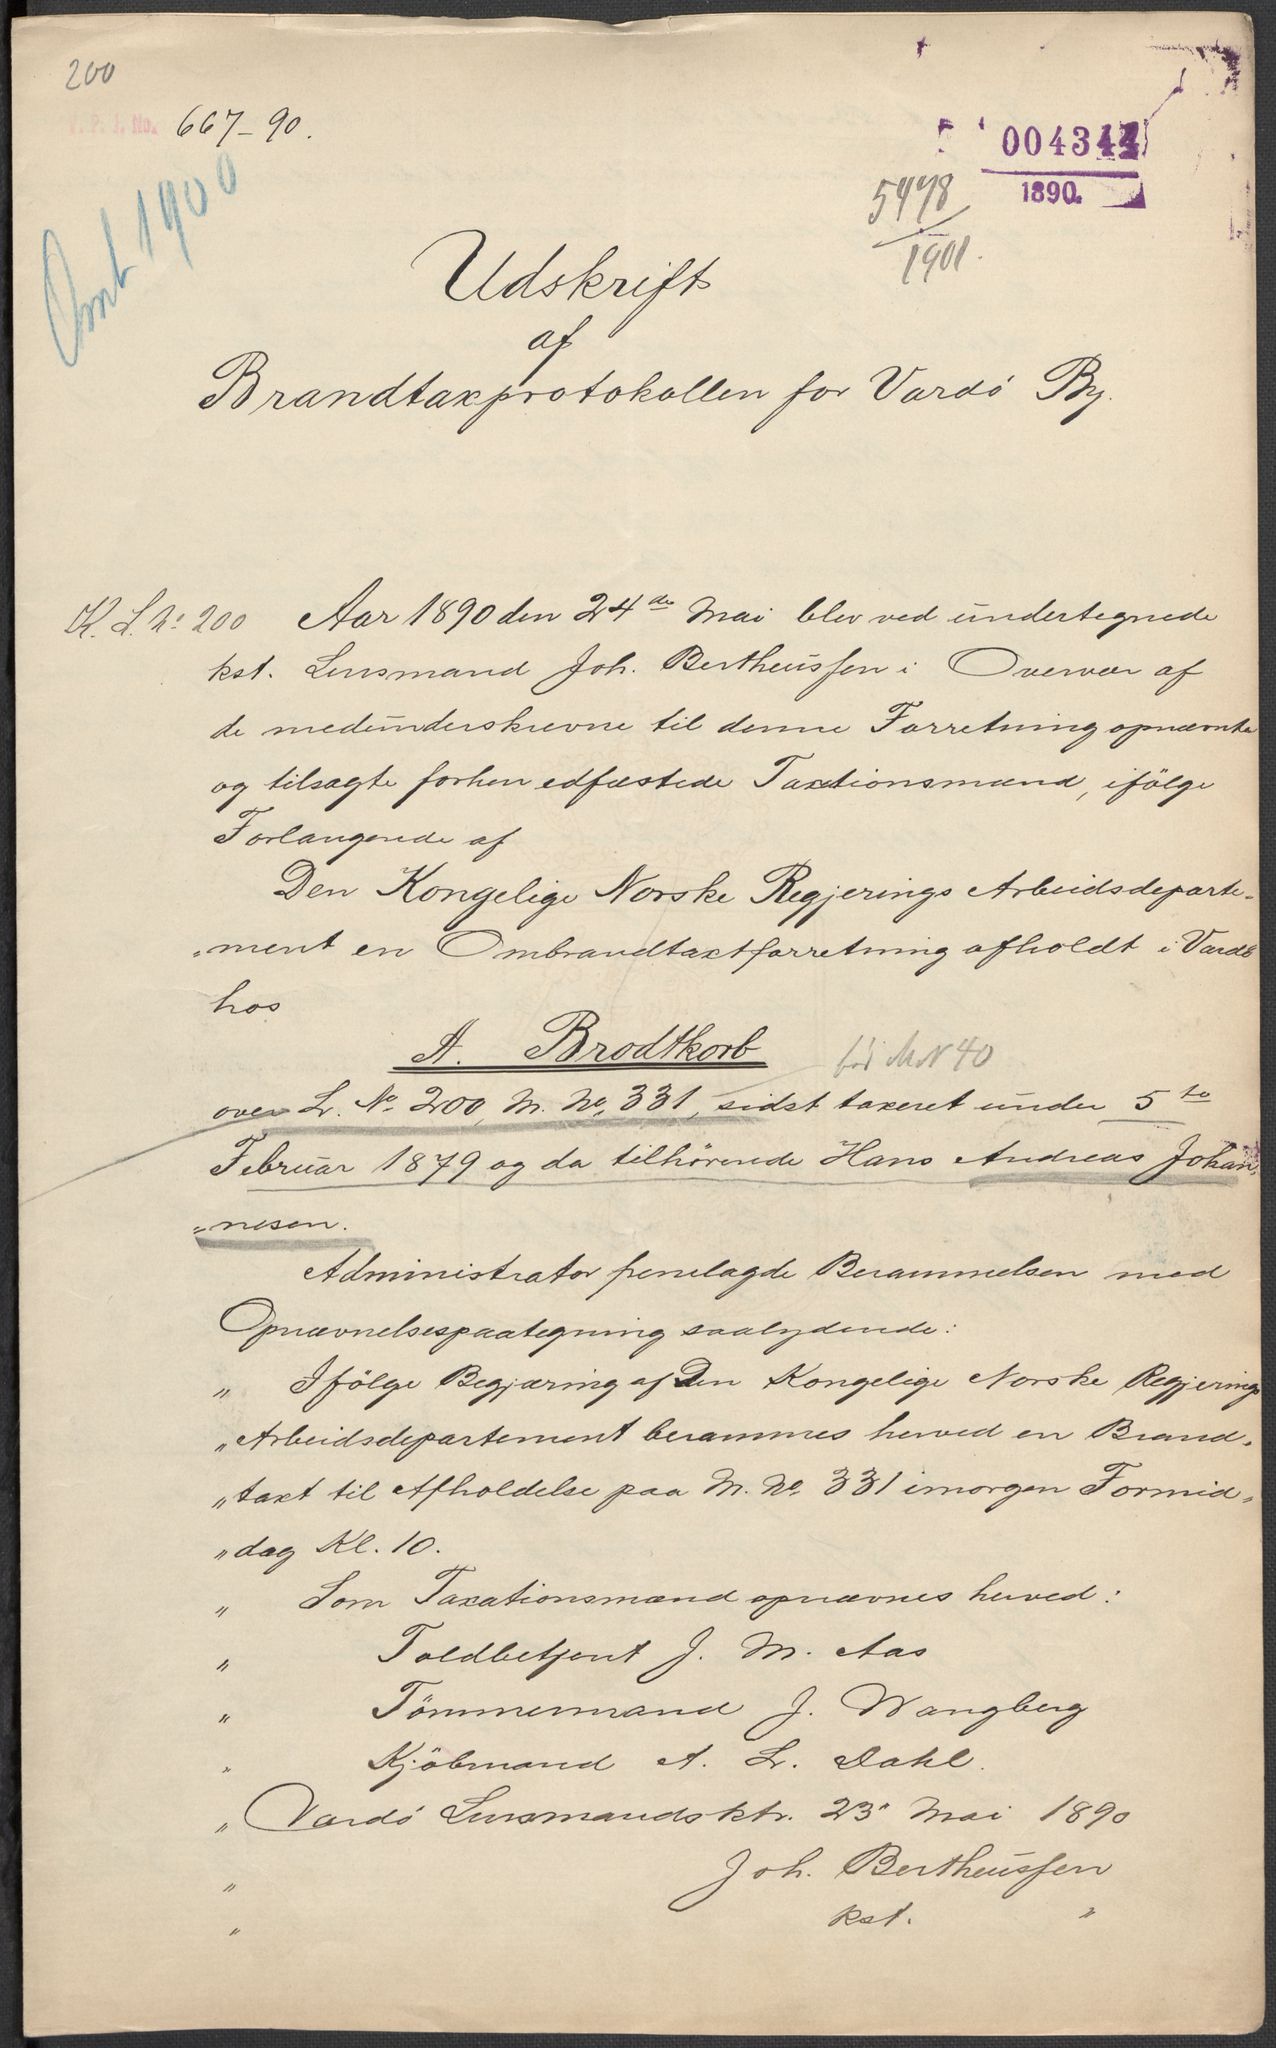 200
V. P. J. No. 667-90.
004344
1890.
5478
1901.
Omt 1900
Udskrift
af
Brandtaxprotokollen for Vardö By.
K. L. No 200 Aar 1890 den 24de Mai blev ved undertegnede
kst. Lensmand Joh. Bertheussen i Overvær af
de medunderskrevne til denne Forretning opnævnte
og tilsagte forhen edfæstede Taxtionsmænd, ifölge
Forlangende af
Den Kongelige Norske Regjerings Arbeidsdeparte-
"ment en Ombrandtaxtforretning afholdt i Vardö
hos
A. Brodtkorb
før M N 40
over L. No. 200, M. No. 331, sidst taxeret under 5te
Februar 1879 og da tilhörende Hans Andreas Johan-
"nesen.
Administrator fremlagde Berammelsen med
Opnævnelsespaategning saalydende:
" Ifölge Begjæring af Den Kongelige Norske Regjerings
"Arbeidsdepartement berammes herved en Brand-
"taxt til Afholdelse paa M. No. 331 imorgen Formid-
"dag Kl. 10.
" Som Taxationsmænd opnævnes herved:
" Toldbetjent J. M. Aas
" Tömmermand J. Wangberg
" Kjöbmand A. L. Dahl.
" Vardö Lensmandsktr. 23' Mai 1890
" Joh. Bertheussen
" kst. "